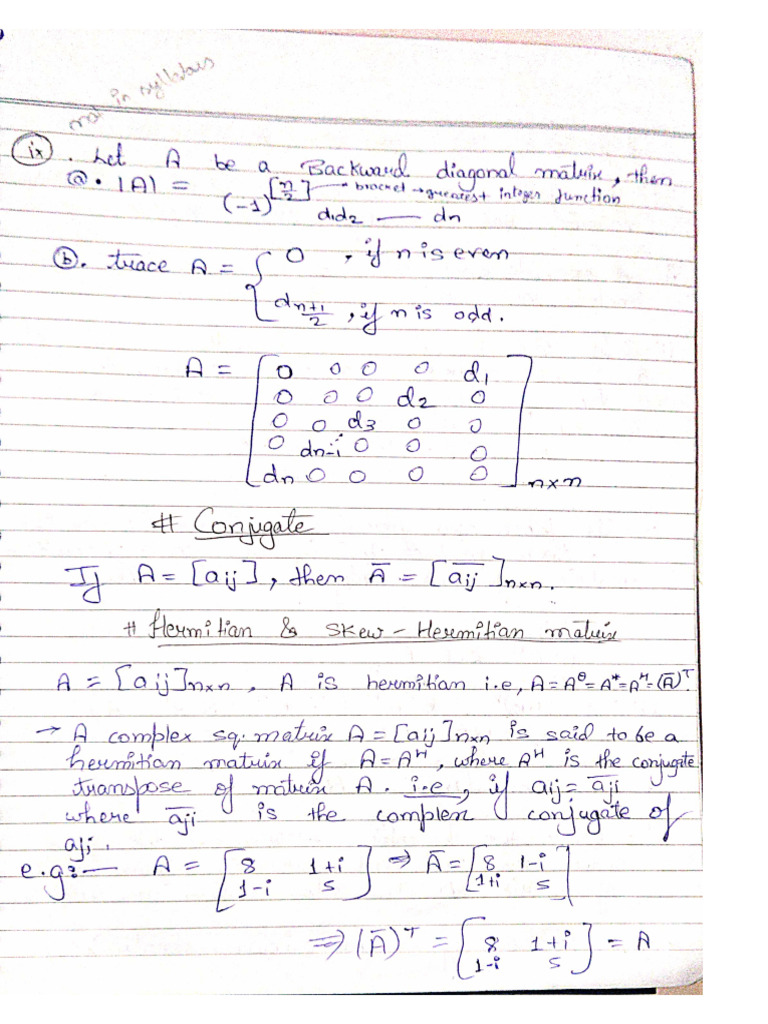 not in syllabus
ix . Let A be a Backward diagonal matrix, then
(a). |A| = (-1)^[n/2] d1d2 — dn → bracket → greatest integer function
(b). trace A = { 0 , if n is even
d n+1/2 , if n is odd.
A = [ 0 0 0 0 d1
0 0 0 d2 0
0 0 d3 0 0
0 dn-1 0 0 0
dn 0 0 0 0 ] n×n
# Conjugate
If A = [aij], then A̅ = [a̅i̅j̅]n×n.
# Hermitian & Skew-Hermitian matrix
A = [aij]n×n, A is hermitian i.e, A = A^θ = A* = A^H = (A̅)^T.
→ A complex sq. matrix A = [aij]n×n is said to be a
hermitian matrix if A = A^H, where A^H is the conjugate
transpose of matrix A. i.e, if aij = a̅j̅i̅
where a̅j̅i̅ is the complex conjugate of
aji.
e.g:— A = [ 8 1+i ⇒ A̅ = [ 8 1-i
1-i 5 ] 1+i 5 ]
⇒ (A̅)^T = [ 8 1+i ] = A
1-i 5